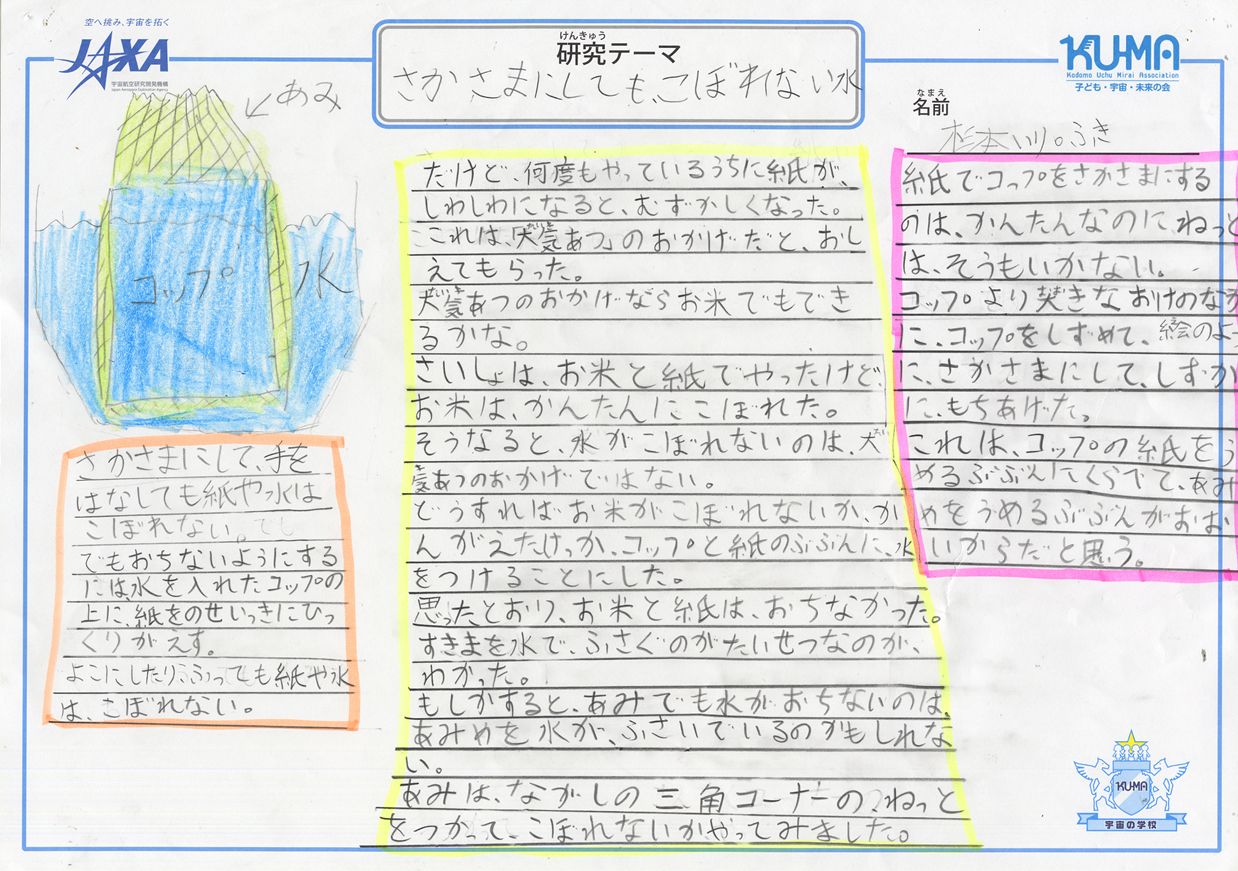 空へ挑み、宇宙を拓く
JAXA
宇宙航空研究開発機構
Japan Aerospace Exploration Agency
けんきゅう
研究テーマ
さかさまにしても、こぼれない水
KU-MA
Kodomo Uchu Mirai Association
子ども・宇宙・未来の会
なまえ
名前
杉本
ふき
あみ
コップ
水
さかさまにして、手を
はなしても紙や水は
こぼれない。
でもおちないようにする
には水を入れたコップの
上に、紙をのせいっきにひっ
くりがえす。
よこにしたりふっても紙や水
は、こぼれない。
だけど、何度もやっているうちに紙が、
しわしわになると、むずかしくなった。
これは、「大気あつ」のおかげだと、おし
えてもらった。
大気あつのおかげならお米でもでき
るかな。
さいしょは、お米と紙でやったけど、
お米は、かんたんにこぼれた。
そうなると、水がこぼれないのは、大
気あつのおかげではない。
どうすればお米がこぼれないか、か
んがえたけっか、コップと紙のぶぶんに、水
をつけることにした。
思ったとおり、お米と紙は、おちなかった。
すきまを水で、ふさぐのがたいせつなのが、
わかった。
もしかすると、あみでも水がおちないのは、
あみめを水が、ふさいでいるのかもしれな
い。
あみは、ながしの三角コーナーの、ねっと
をつかって、こぼれないかやってみました。
紙でコップをさかさまにする
のは、かんたんなのに、ねっと
は、そうもいかない。
コップより大きなおけのなか
に、コップをしずめて、絵のよう
に、さかさまにして、しずか
に、もちあげた。
これは、コップの紙をう
めるぶぶんにくらべて、あみ
めをうめるぶぶんがおお
いからだと思う。
KU-MA
宇宙の学校